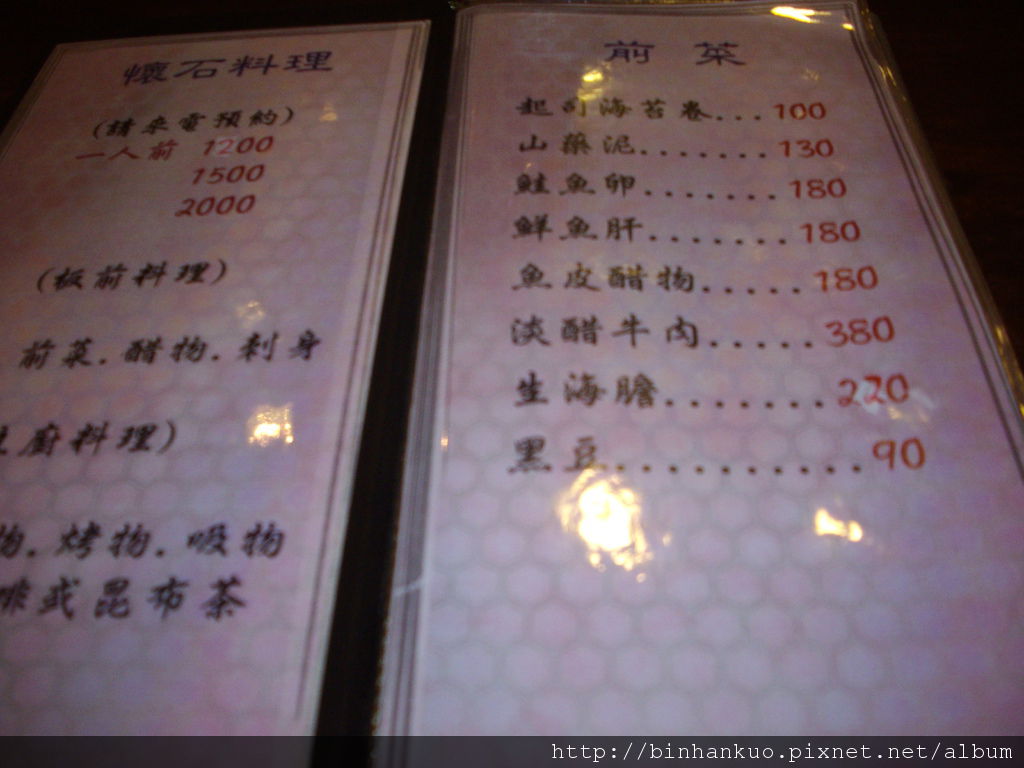 懷石料理
(請來電預約)
一人前 1200
1500
2000
(板前料理)
前菜.醋物.刺身
廚料理)
物.烤物.吸物
啡或昆布茶
前 菜
起司海苔卷...100
山藥泥.......130
鮭魚卵.......180
鮮魚肝.......180
魚皮醋物.....180
淡醋牛肉.....380
生海膽.......220
黑豆...........90
http://binhankuo.pixnet.net/album